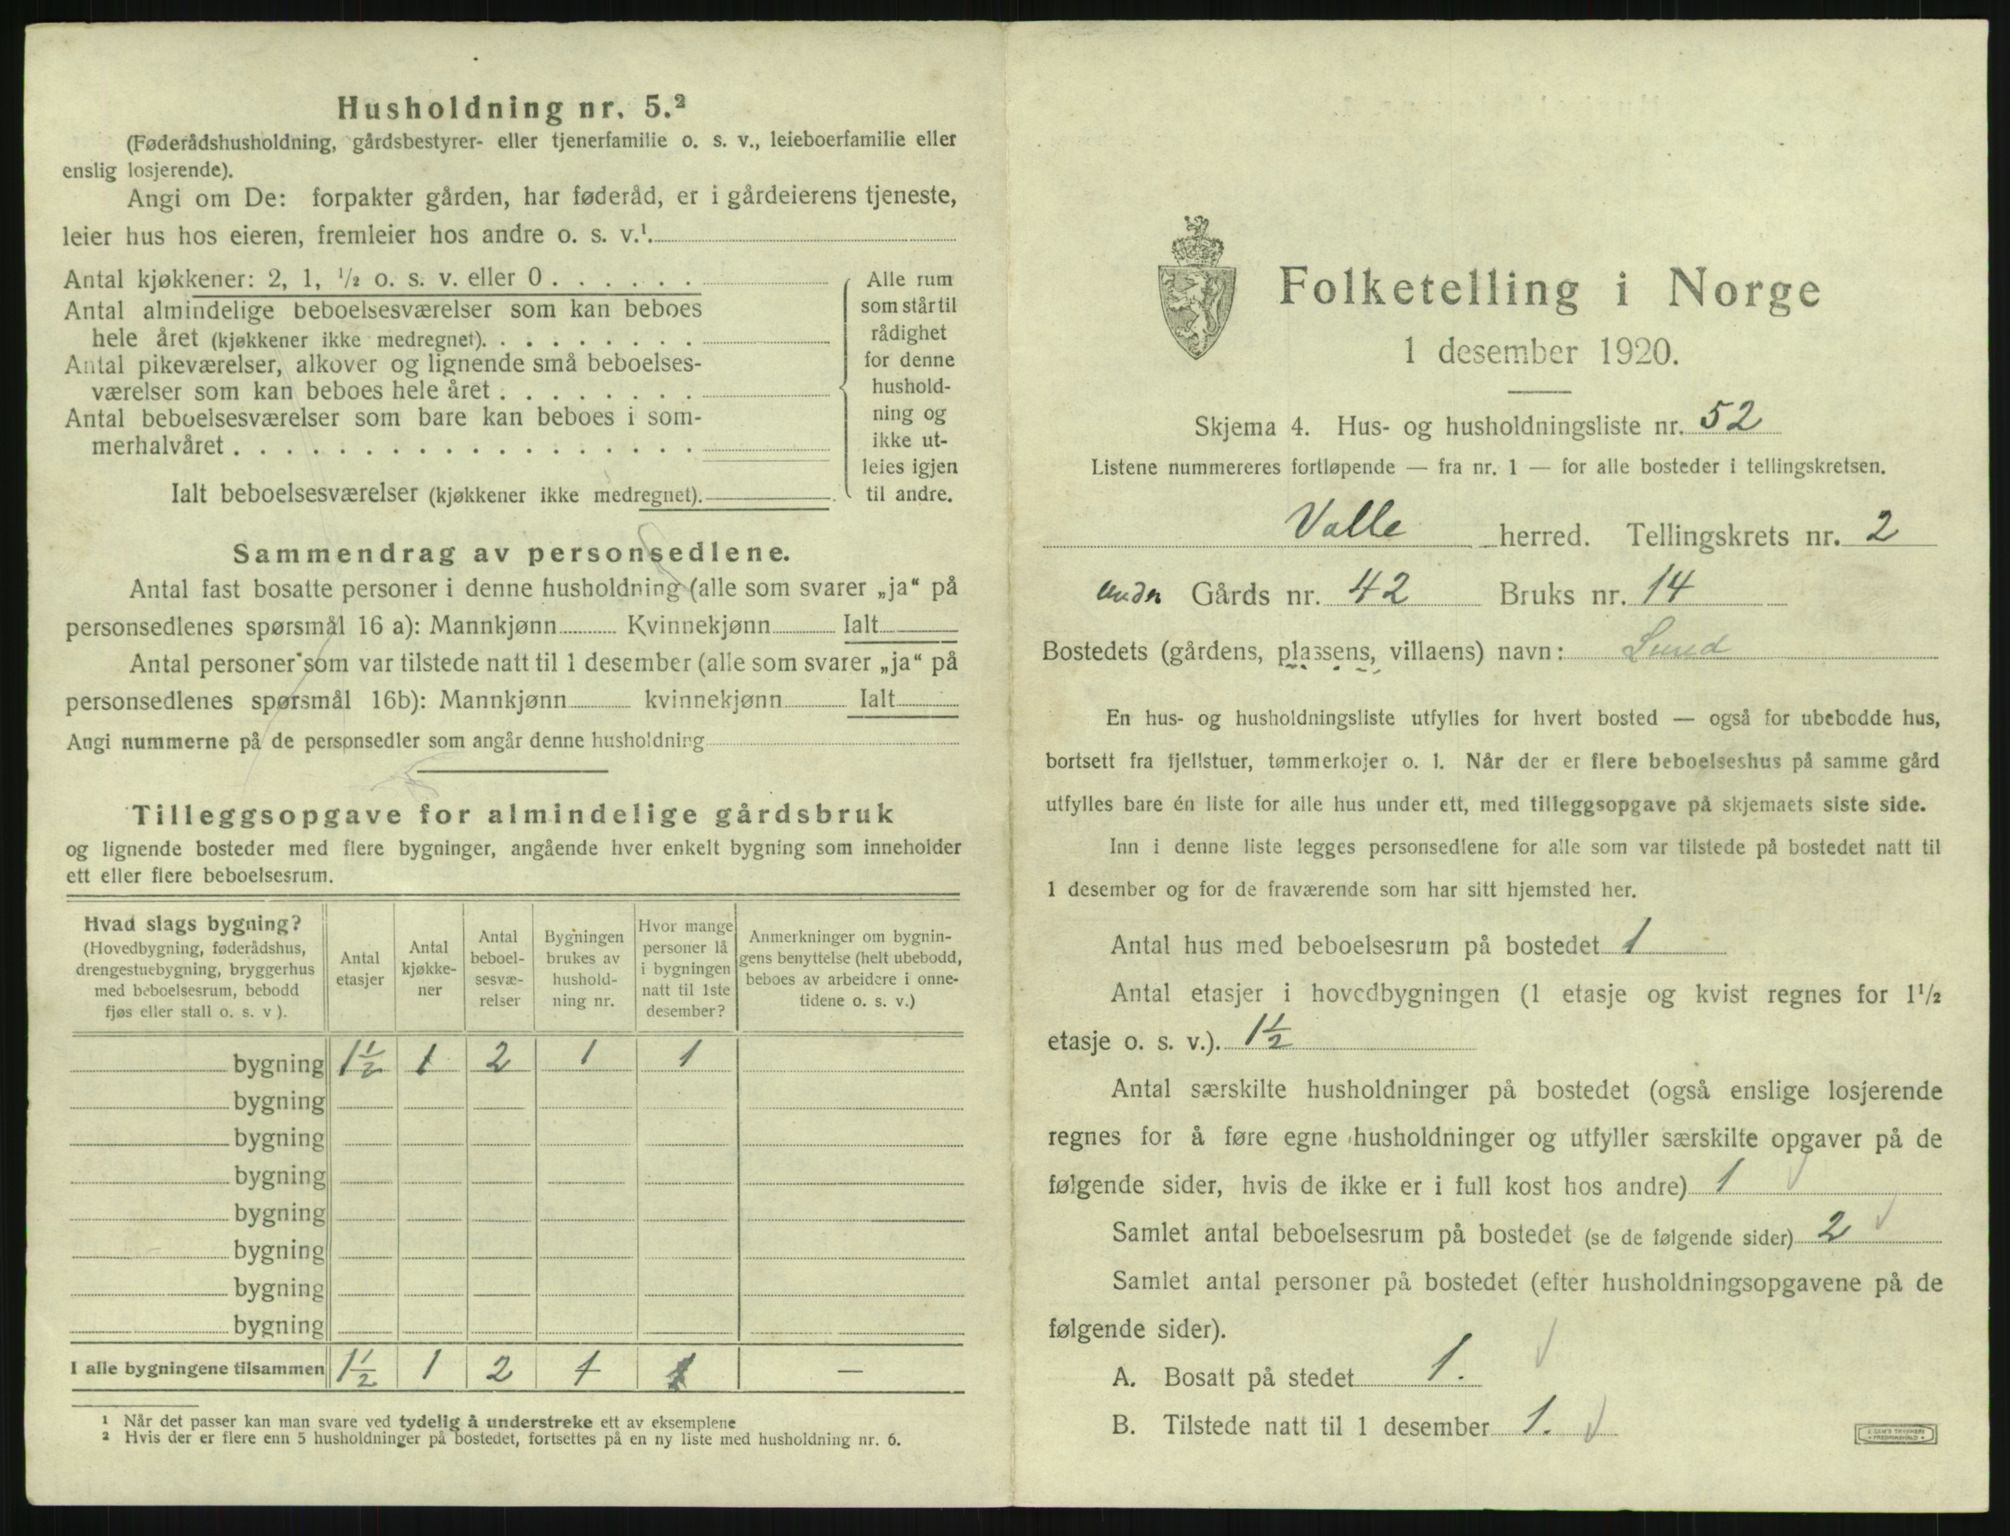 Husholdning nr. 5.²
(Føderådshusholdning, gårdsbestyrer- eller tjenerfamilie o. s. v., leieboerfamilie eller
enslig losjerende).
Angi om De: forpakter gården, har føderåd, er i gårdeierens tjeneste,
leier hus hos eieren, fremleier hos andre o. s. v.¹
Antal kjøkkener: 2, 1, ¹/₂ o. s. v. eller 0 . . . . . .
Antal almindelige beboelsesværelser som kan beboes
hele året (kjøkkener ikke medregnet). . . . . . . . .
Antal pikeværelser, alkover og lignende små beboelses-
værelser som kan beboes hele året . . . . . . . .
Antal beboelsesværelser som bare kan beboes i som-
merhalvåret . . . . . . . . . . . . . . . . . .
Ialt beboelsesværelser (kjøkkener ikke medregnet).
Alle rum
som står til
rådighet
for denne
hushold-
ning og
ikke ut-
leies igjen
til andre.
Sammendrag av personsedlene.
Antal fast bosatte personer i denne husholdning (alle som svarer „ja“ på
personsedlenes spørsmål 16 a): Mannkjønn Kvinnekjønn Ialt
Antal personer som var tilstede natt til 1 desember (alle som svarer „ja“ på
personsedlenes spørsmål 16b): Mannkjønn kvinnekjønn Ialt
Angi nummerne på de personsedler som angår denne husholdning
Tilleggsopgave for almindelige gårdsbruk
og lignende bosteder med flere bygninger, angående hver enkelt bygning som inneholder
ett eller flere beboelsesrum.
Hvad slags bygning?
(Hovedbygning, føderådshus,
drengestuebygning, bryggerhus
med beboelsesrum, bebodd
fjøs eller stall o. s. v ).
Antal
etasjer
Antal
kjøkke-
ner
Antal
beboel-
sesvæ-
relser
Bygningen
brukes av
hushold-
ning nr.
Hvor mange
personer lå
i bygningen
natt til 1ste
desember?
Anmerkninger om bygnin-
gens benyttelse (helt ubebodd,
beboes av arbeidere i onne-
tidene o. s. v.)
bygning 1½ 1 2 1 1
bygning
bygning
bygning
bygning
bygning
bygning
bygning
I alle bygningene tilsammen 1½ 1 2 1 1 —
¹ Når det passer kan man svare ved tydelig å understreke ett av eksemplene
² Hvis der er flere enn 5 husholdninger på bostedet, fortsettes på en ny liste med husholdning nr. 6.
Folketelling i Norge
1 desember 1920.
Skjema 4. Hus- og husholdningsliste nr. 52
Listene nummereres fortløpende — fra nr. 1 — for alle bosteder i tellingskretsen.
Valle herred. Tellingskrets nr. 2
under Gårds nr. 42 Bruks nr. 14
Bostedets (gårdens, plassens, villaens) navn: Lund
En hus- og husholdningsliste utfylles for hvert bosted — også for ubebodde hus,
bortsett fra fjellstuer, tømmerkojer o. l. Når der er flere beboelseshus på samme gård
utfylles bare én liste for alle hus under ett, med tilleggsopgave på skjemaets siste side.
Inn i denne liste legges personsedlene for alle som var tilstede på bostedet natt til
1 desember og for de fraværende som har sitt hjemsted her.
Antal hus med beboelsesrum på bostedet 1
Antal etasjer i hovedbygningen (1 etasje og kvist regnes for 1¹/₂
etasje o. s. v.). 1½
Antal særskilte husholdninger på bostedet (også enslige losjerende
regnes for å føre egne husholdninger og utfyller særskilte opgaver på de
følgende sider, hvis de ikke er i full kost hos andre) 1
Samlet antal beboelsesrum på bostedet (se de følgende sider) 2
Samlet antal personer på bostedet (efter husholdningsopgavene på de
følgende sider).
A. Bosatt på stedet 1.
B. Tilstede natt til 1 desember 1.